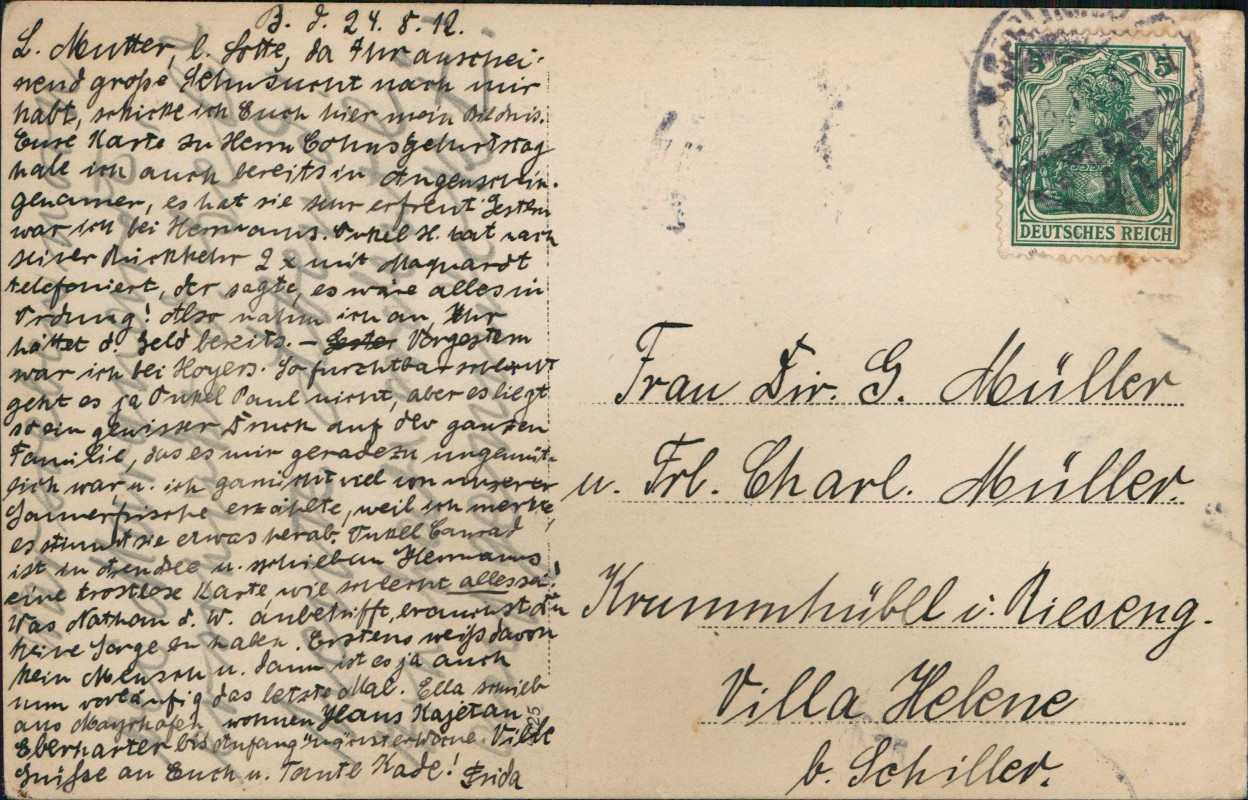 B. d. 24.8.12.
L. Mutter, l. Lotte, da Ihr anschei-
nend große Sehnsucht nach mir
habt, schicke ich Euch hier mein Bildnis.
Eure Karte zu Herrn Cohns Geburtstag
habe ich auch bereits in Augenschein
genomen, es hat sie sehr erfreut. Gestern
war ich bei Hermanns. Onkel H. hat nach
seiner Rückkehr 2 x mit Maquardt
telefoniert, der sagte, es wäre alles in
Ordnung! Also nahm ich an, Ihr
hättet d. Geld bereits. – Vorgestern
war ich bei Hoyers. So furchtbar schlecht
geht es ja Onkel Paul nicht, aber es liegt
so ein gewisser Druck auf der ganzen
Familie, das es mir geradezu ungemüt-
lich war u. ich garnicht viel von unserer
Somerfrische erzählte, weil ich merke,
es stimmt sie etwas herab. Onkel Conrad
ist in u. schrieb an Hermanns
eine trostlose Karte wie schlecht alles sei!
Was Nathan d. W. anbetrifft, brauchst Du
keine Sorge zu haben. Erstens weiß davon
kein Mensch u. dann ist es ja auch
nun vorläufig das letzte Mal. Ella schrieb
aus Mayrhofen wohnen Haus Kajetan
Eberharter bis Anfang nächster Woche. Viele
Grüße an Euch u. Tante Kade! Frida
5 5
DEUTSCHES REICH
Frau Dir. G. Müller
u. Frl. Charl. Müller.
Krummhübel i. Rieseng.
Villa Helene
b. Schiller.